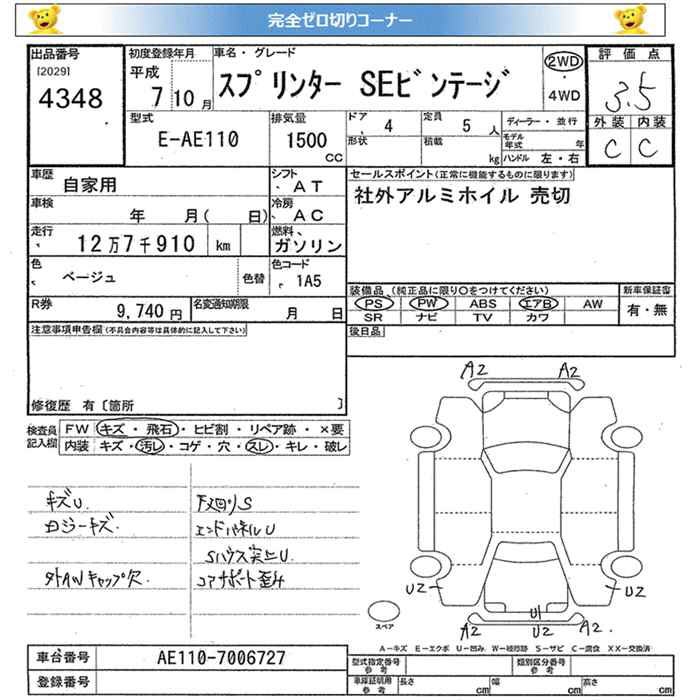 完全ゼロ切りコーナー
出品番号
[2029]
4348
初度登録年月
平成
7 10月
車名・グレード
スプリンター SEビンテージ
2WD
4WD
評価点
3.5
外装 内装
C C
型式
E-AE110
排気量
1500
CC
ドア
4
定員
5 人
形状
積載
kg
ディーラー・並行
モデル年式 年
ハンドル 左・右
車歴
自家用
シフト
AT
車検
年 月( 日)
冷房
AC
走行
12万7千910 km
燃料
ガソリン
色
ベージュ
色替
色コード
1A5
R券
9,740円
名変通知期限
月 日
セールスポイント(正常に機能するものに限ります)
社外アルミホイル 売切
装備品 (純正品に限り〇をつけてください)
PS PW ABS エアB AW
SR ナビ TV カワ
新車保証書
有・無
後日品
注意事項申告欄(不具合内容等は具体的に記入して下さい)
修復歴 有〔箇所 〕
検査員記入欄
FW キズ・飛石・ヒビ割・リペア跡・×要
内装 キズ・汚レ・コゲ・穴・スレ・キレ・破レ
キズU
外AWキャップ欠
エンドパネルU
コアサポート歪み
A2 A2
U2 U2
U1
A2 U2 A2
スペア
A-キズ E-エクボ U-凹み W-補修跡 S-サビ C-腐食 XX-交換済
車台番号
AE110-7006727
登録番号
型式指定番号
参考
類別区分番号
参考
車庫証明用
参考
長さ cm
幅 cm
高さ cm